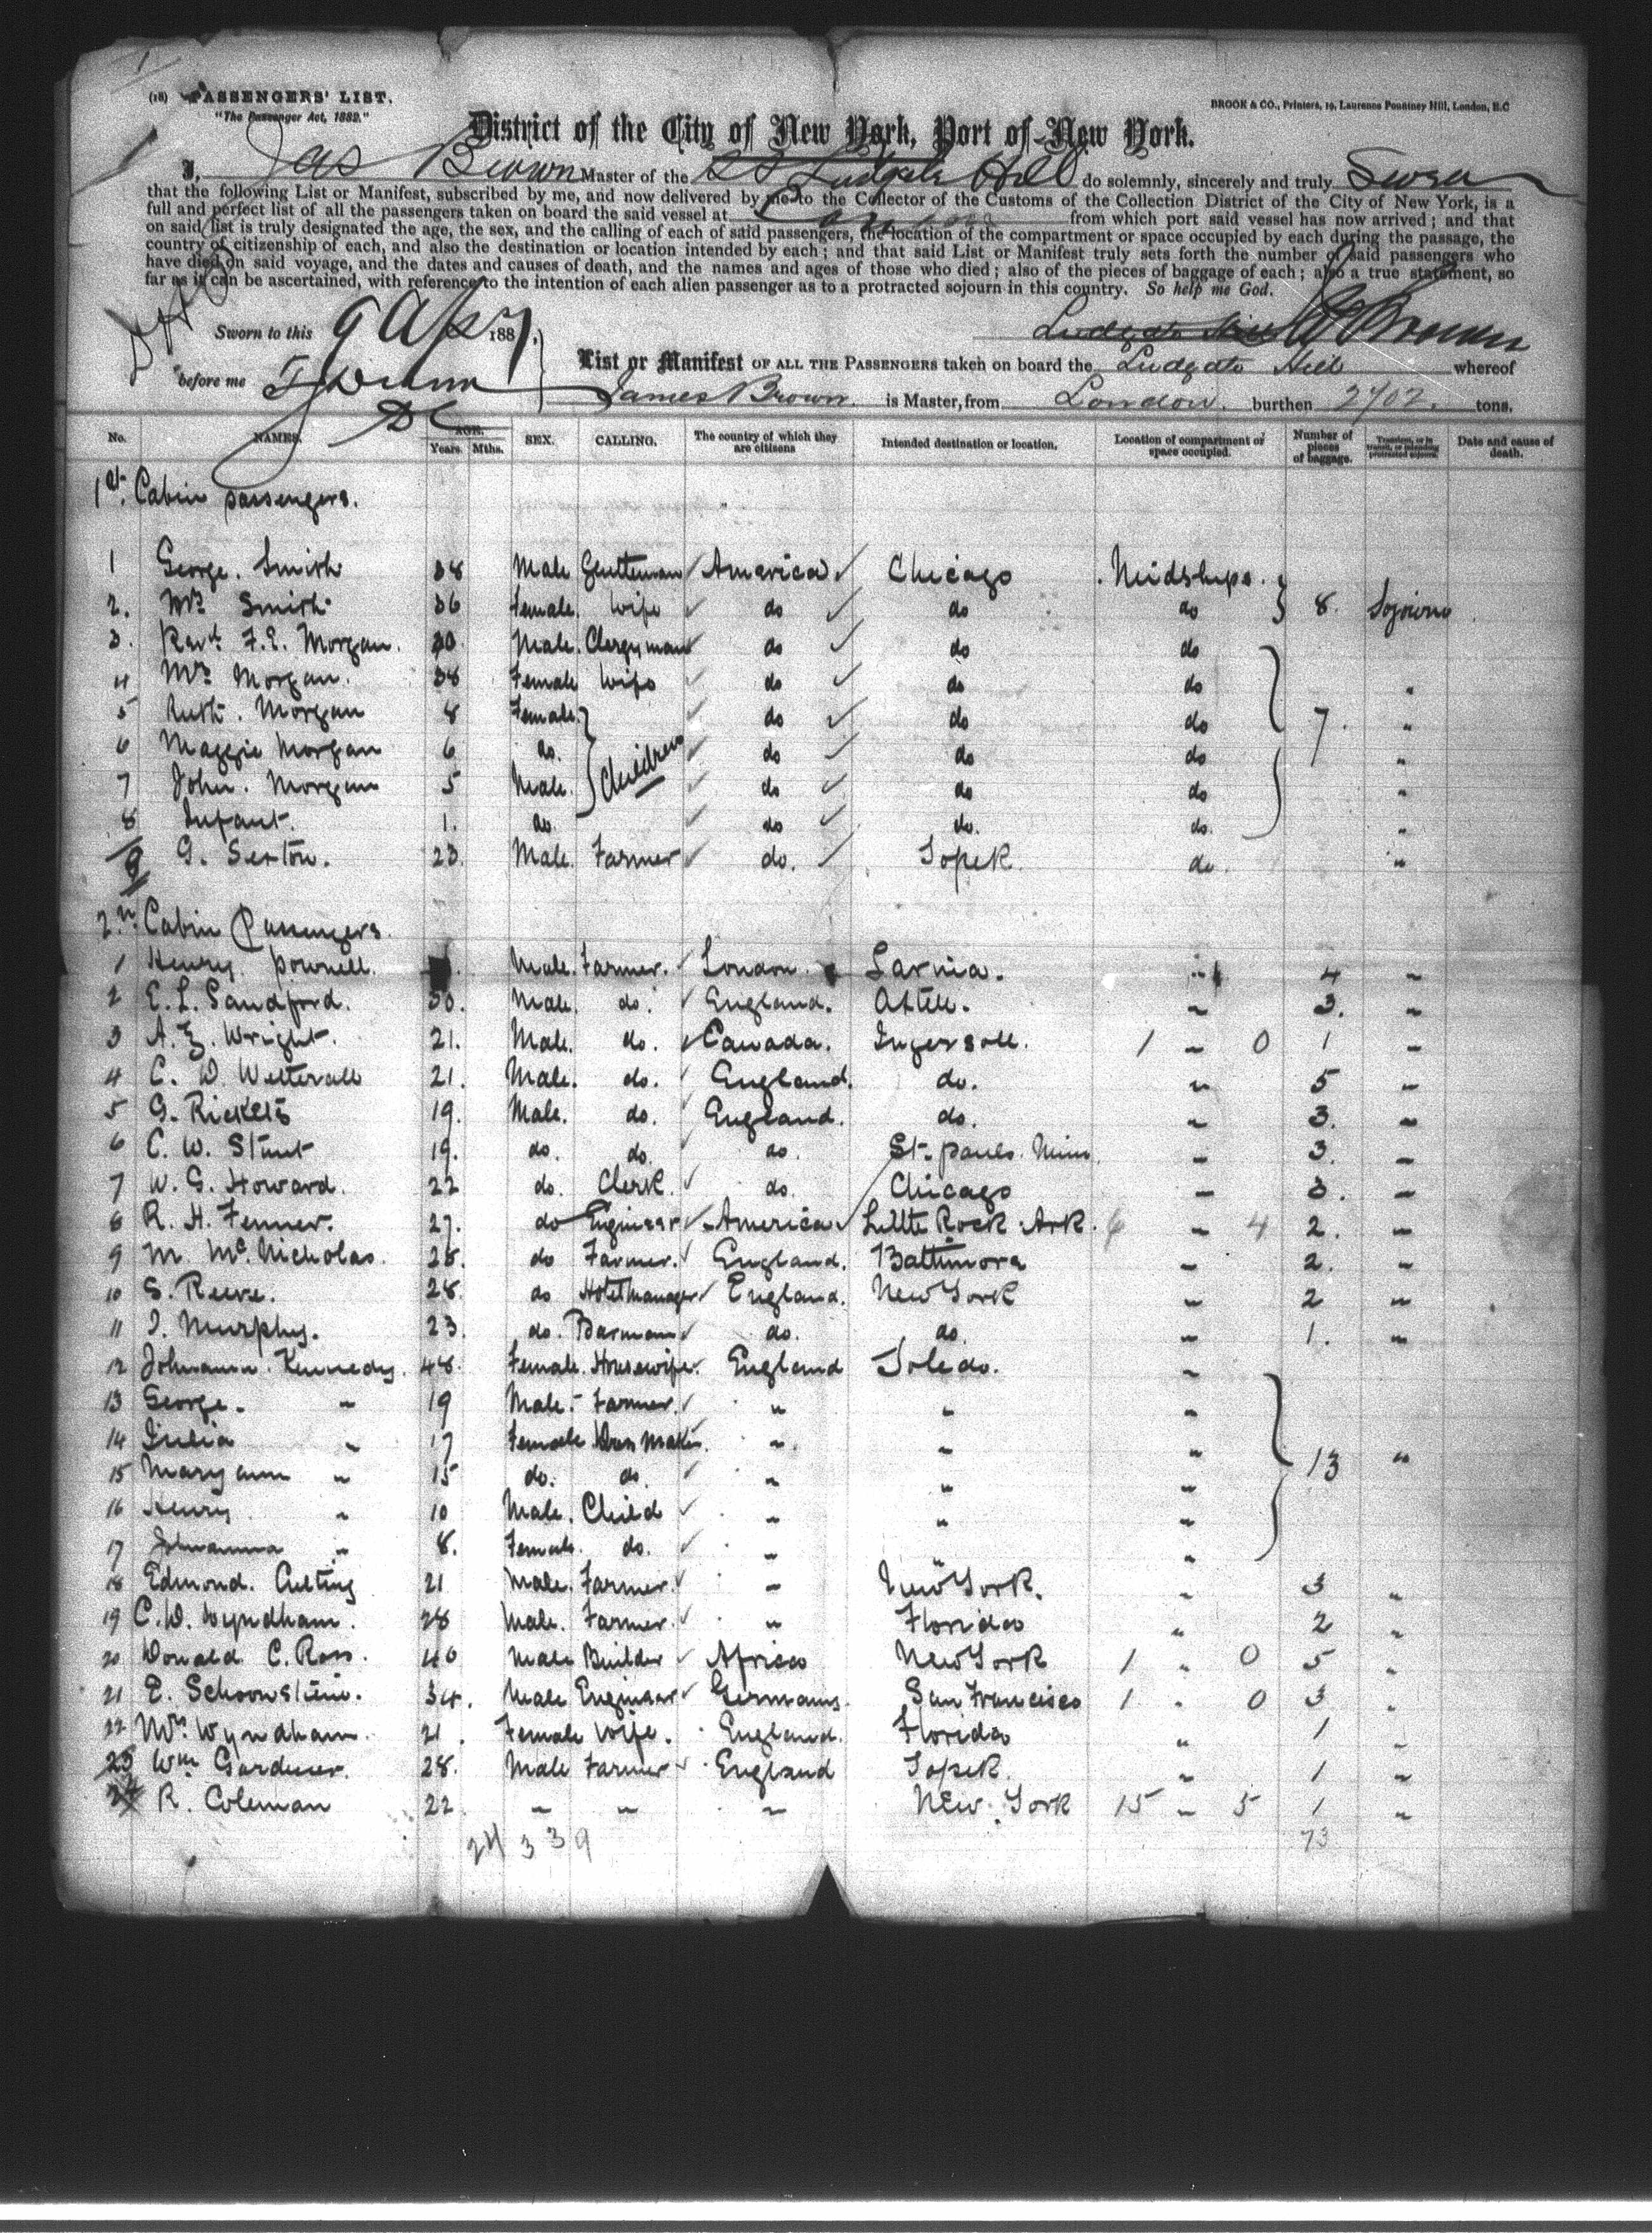 (18) PASSENGERS' LIST.
"The Passenger Act, 1882."
BROOK & CO., Printers, 19, Laurence Pountney Hill, London, E.C
District of the City of New York, Port of New York.
I, Jas Brown Master of the SS Ludgate Hill do solemnly, sincerely and truly Swear
that the following List or Manifest, subscribed by me, and now delivered by me to the Collector of the Customs of the Collection District of the City of New York, is a
full and perfect list of all the passengers taken on board the said vessel at London from which port said vessel has now arrived; and that
on said list is truly designated the age, the sex, and the calling of each of said passengers, the location of the compartment or space occupied by each during the passage, the
country of citizenship of each, and also the destination or location intended by each; and that said List or Manifest truly sets forth the number of said passengers who
have died on said voyage, and the dates and causes of death, and the names and ages of those who died; also of the pieces of baggage of each; also a true statement, so
far as it can be ascertained, with reference to the intention of each alien passenger as to a protracted sojourn in this country. So help me God.
Sworn to this 9 Apr 1887,
Brown
before me
List or Manifest OF ALL THE PASSENGERS taken on board the Ludgate Hill whereof
James Brown is Master, from London. burthen 2702. tons.
No. NAMES. AGE. Years. Mths. SEX. CALLING. The country of which they are citizens Intended destination or location. Location of compartment or space occupied. Number of pieces of baggage. Transient, or in transit, or intending protracted sojourn. Date and cause of death.
1st. Cabin passengers.
1 George. Smith 38 Male Gentleman America Chicago Midships.
2. Mrs Smith 36 Female. Wife do do do 8. Sojourn
3. Revd. F.E. Morgan. 30 Male. Clergyman do do do
4 Mrs Morgan. 38 Female Wife do do do "
5 Ruth. Morgan 8 Female. do do do 7. "
6 Maggie Morgan 6 do. Children do do do "
7 John. Morgan 5 Male. do do do "
8 Infant. 1. do. do do. do. "
9 G. Sexton. 23. Male. Farmer do. Topek. do. "
2n. Cabin Passengers.
1 Henry. Pownell. Male. Farmer. London. Sarnia. " 4 "
2 E. L. Sandford. 30. Male. do. England. " 3. "
3 A. E. Wright. 21. Male. do. Canada. Ingersoll. 1 " 0 1 "
4 C. D. Wetterall 21. Male. do. England. do. " 5 "
5 G. Ricketts 19. Male. do. England. do. " 3. "
6 C. W. Stunt 19. do. do. do. St. Pauls. Minn. " 3. "
7 W. G. Howard. 22 do. Clerk. do. Chicago " 3. "
8 R. H. Fenner. 27. do Engineer America Little Rock Ark. 6 " 4 2. "
9 M. McNicholas. 28. do Farmer. England. Baltimore " 2. "
10 S. Reeve. 28. do Hotel Manager England. New York " 2 "
11 J. Murphy. 23. do. Barman do. do. " 1. "
12 Johanna. Kennedy. 48. Female. Housewife. England Toledo. "
13 George. " 19 Male. Farmer. " " "
14 Julia " 17 Female Dress Maker. " " "
15 Mary ann " 15 do. do " " " 13 "
16 Henry " 10 Male. Child " " "
17 Johanna " 8. Female. do. " " "
18 Edmond. Cutting 21 Male. Farmer. " New York. " 3 "
19 C. D. Wyndham. 28 Male. Farmer. " Florida " 2 "
20 Donald C. Ross. 40 Male Builder Africa New York 1 " 0 5 "
21 E. Schoonstein. 34. Male Engineer Germany. San Francisco 1 " 0 3 "
22 Mrs Wyndham. 21. Female Wife. England. Florida " 1 "
23 Wm Gardiner. 28. Male Farmer England Topek. " 1 "
24 R. Coleman 22 " " " New York 15 " 5 1 "
24 339 73